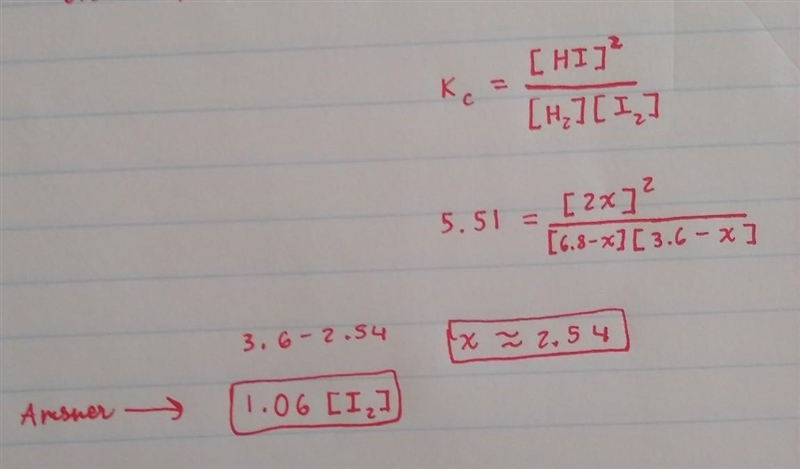 K_c = [HI]² / [H₂][I₂]
5.51 = [2x]² / [6.8-x][3.6-x]
3.6-2.54 x ≈ 2.54
Answer → 1.06 [I₂]